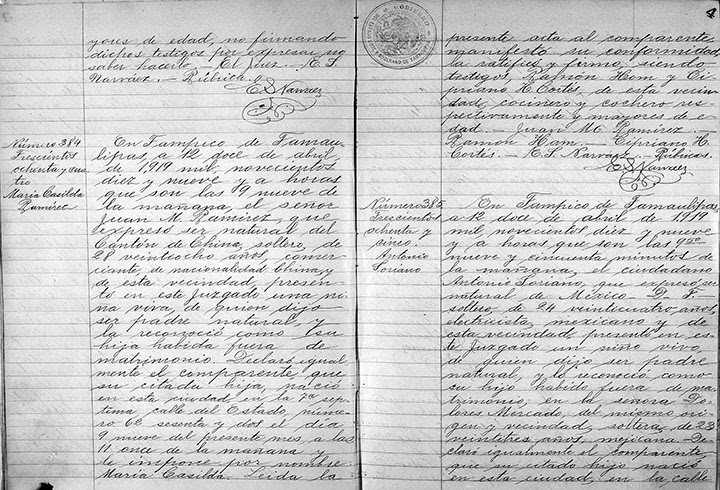 yores de edad, no firmando
dichos testigos por expresar no
saber hacerlo. El Juez. E. S.
Narváez.- Rúbrica.
E S Narvaez
Número 384
Trescientos
ochenta y cua
tro
María Casilda
Ramirez
En Tampico de Tamau-
lipas, a 12 doce de abril
de 1919 mil, novecientos
diez y nueve y a horas
que son las 9 nueve de
la mañana, el señor
Juan M. Ramirez, que
expresó ser natural del
Cantón de China, soltero, de
28 veintiocho años, comer-
ciante, de nacionalidad China, y
de esta vecindad, presen-
tó en este Juzgado una ni-
ña viva, de quien dijo
ser padre natural, y
la reconoció como su
hija habida fuera de
matrimonio. Declaró igual-
mente el compareciente que
su citada hija, nació
en esta ciudad en la 7a sép-
tima calle del Estado, núme-
ro 62 sesenta y dos el día
9 nueve del presente mes, a las
11 once de la mañana y
le impone por nombre
María Casilda. Leida la
4
presente acta al comparente
manifestó su conformidad,
la ratificó y firmó, siendo
testigos, Ramón Ham y Ci-
priano H. Cortés, de esta vecin-
dad, cocinero y cochero res-
pectivamente y mayores de e-
dad.- Juan M. Ramirez.-
Ramón Ham.- Cipriano H.
Cortes.- E. S. Narvaez.- Rúbricas.
E S Narvaez
Número 385
Trescientos
ochenta y
cinco.
Antonio
Soriano
En Tampico de Tamaulipas,
a 12 doce de abril de 1919
mil, novecientos diez y nueve
y a horas que son las 9 50
nueve y cincuenta minutos de
la mañana, el ciudadano
Antonio Soriano, que expresó ser
natural de Mexico - D. F.-
soltero, de 24 veinticuatro años,
electricista, mexicano y de
esta vecindad, presentó en es-
te Juzgado un niño vivo,
de quien dijo ser padre
natural, y lo reconoció como
su hijo habido fuera de ma-
trimonio, en la señora Do-
lores Mercado, del mismo ori-
gen y vecindad, soltera, de 23
veintitres años, mejicana. De-
claró igualmente el comparente
que su citado hijo nació
en esta ciudad, en la calle